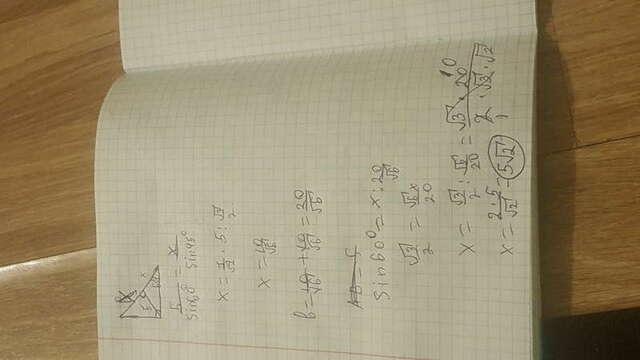 5 x
60°
5/sin60° = x/sin45°
x = 1/√2 · 5 : √3/2
x = 10/√6
b = 10/√6 + 10/√6 = 20/√6
AB = 5
sin60° = x : 20/√6
√3/2 = √6x/20
x = √3/2 : √6/20 = √3 · 20 10/2 1 · √3 · √2
x = 2·5/√2 = 5√2